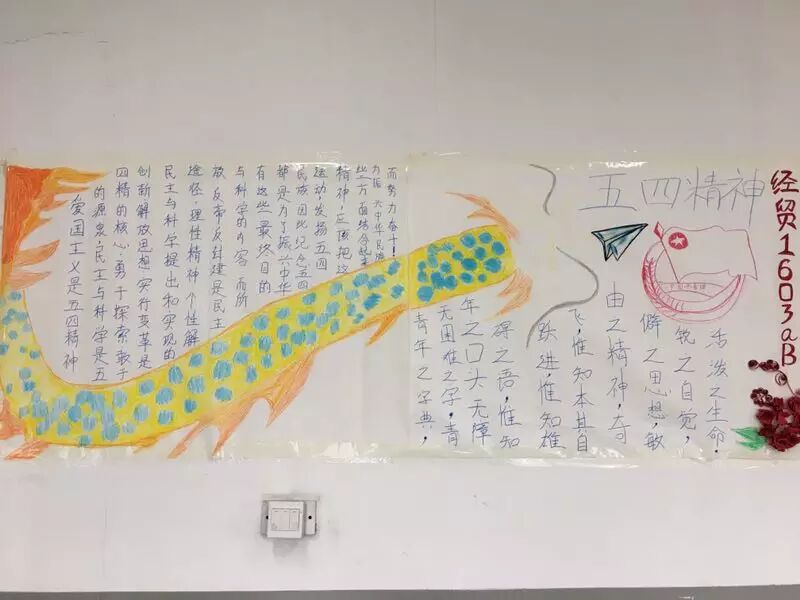 五四精神
经贸1603aB
爱国主义是五四精神
的源泉,民主与科学是五
四精的核心.勇于探索敢于
创新解放思想实行变革是
民主与科学提出和实现的
途径,理性精神个性解
放反帝反封建是民主
与科学的内容.而所
有这些最终目的
都是为了振兴中华
民族因此纪念五四
运动,发扬五四
精神,应该把这
些方面结合起来
为振兴中华民族
而努力奋斗!
青年之字典,
无困难之字,青
年之口头无障
碍之语,惟知
跃进,惟知雄
飞,惟知本其自
由之精神,奇
僻之思想,敏
锐之自觉,
活泼之生命.